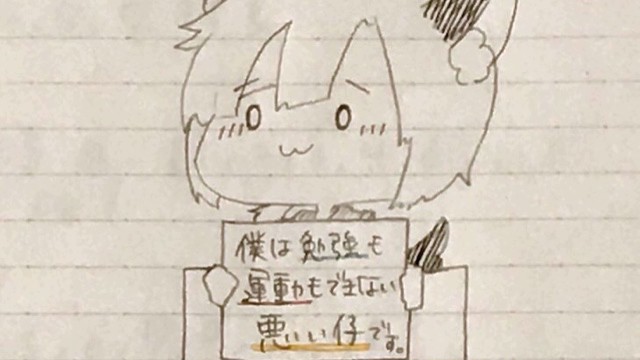 僕は勉強も
運動もできない
悪いい仔です。